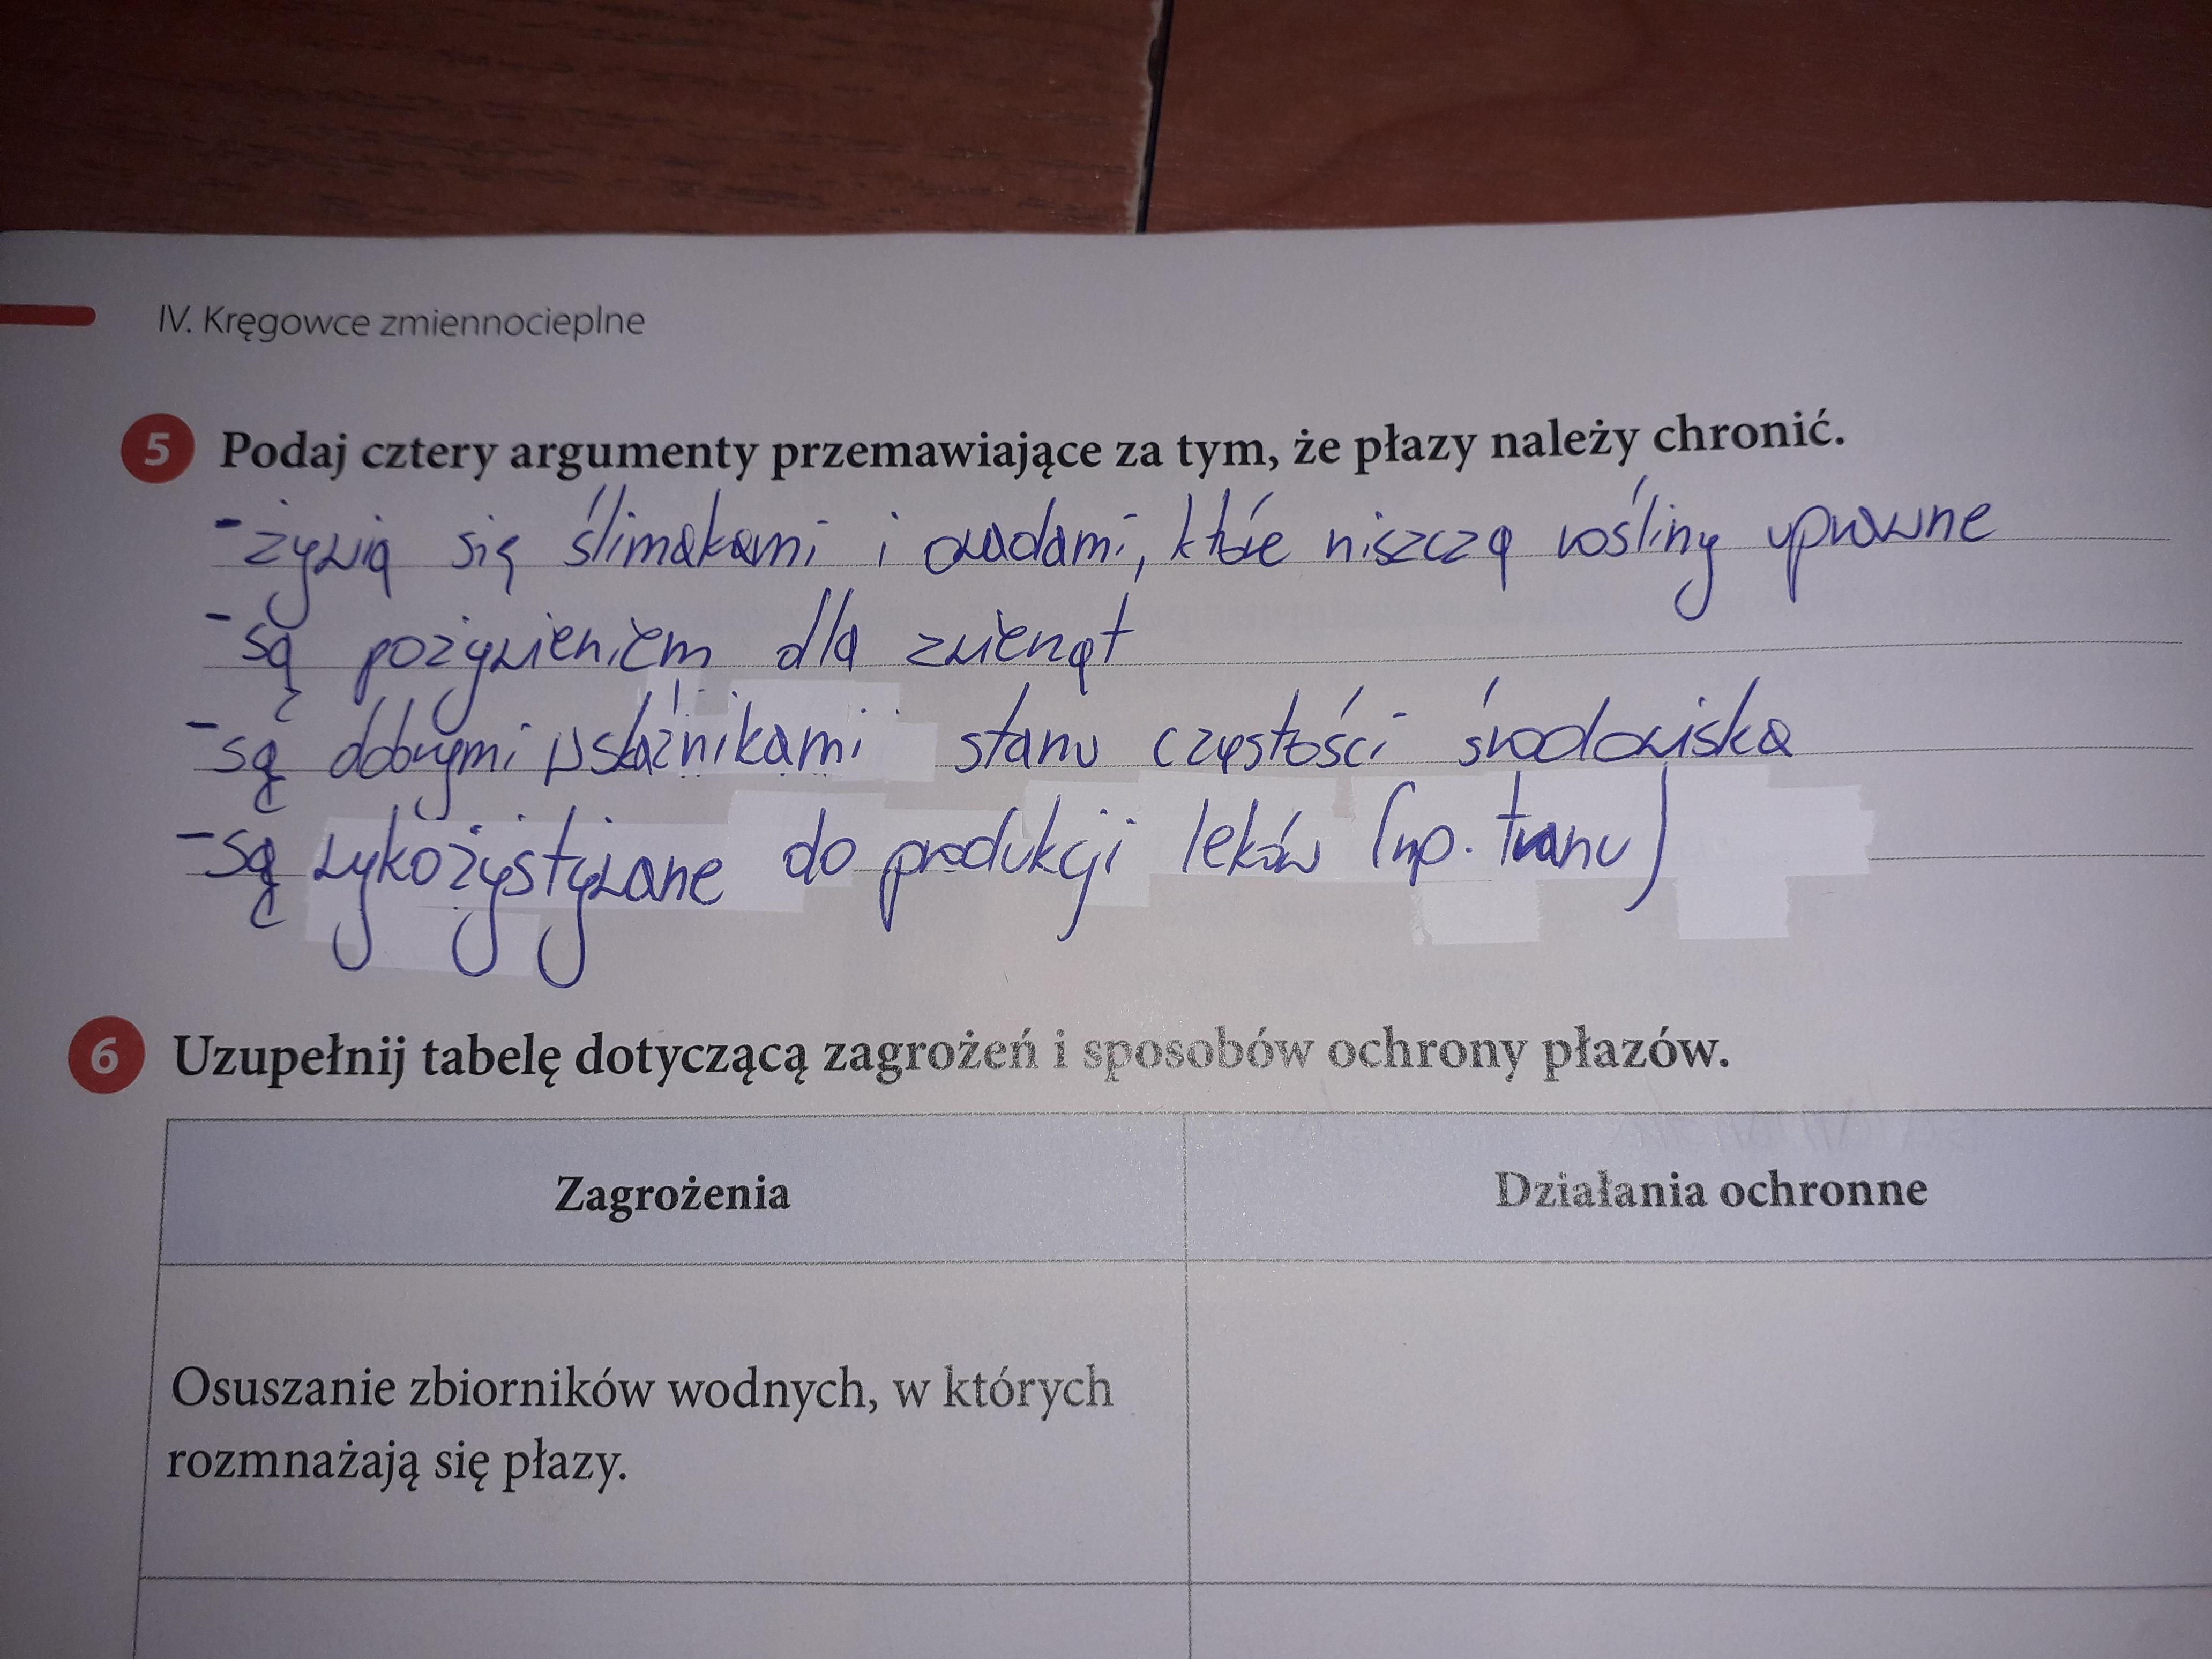 IV. Kręgowce zmiennocieplne
5 Podaj cztery argumenty przemawiające za tym, że płazy należy chronić.
- żywią się ślimakami i owadami, które niszczą rośliny uprawne
- są pożywieniem dla zwierząt
- są dobrymi wskaźnikami stanu częstości środowiska
- są wykożystywane do produkcji leków (np. tranu)
6 Uzupełnij tabelę dotyczącą zagrożeń i sposobów ochrony płazów.
Zagrożenia Działania ochronne
Osuszanie zbiorników wodnych, w których
rozmnażają się płazy.